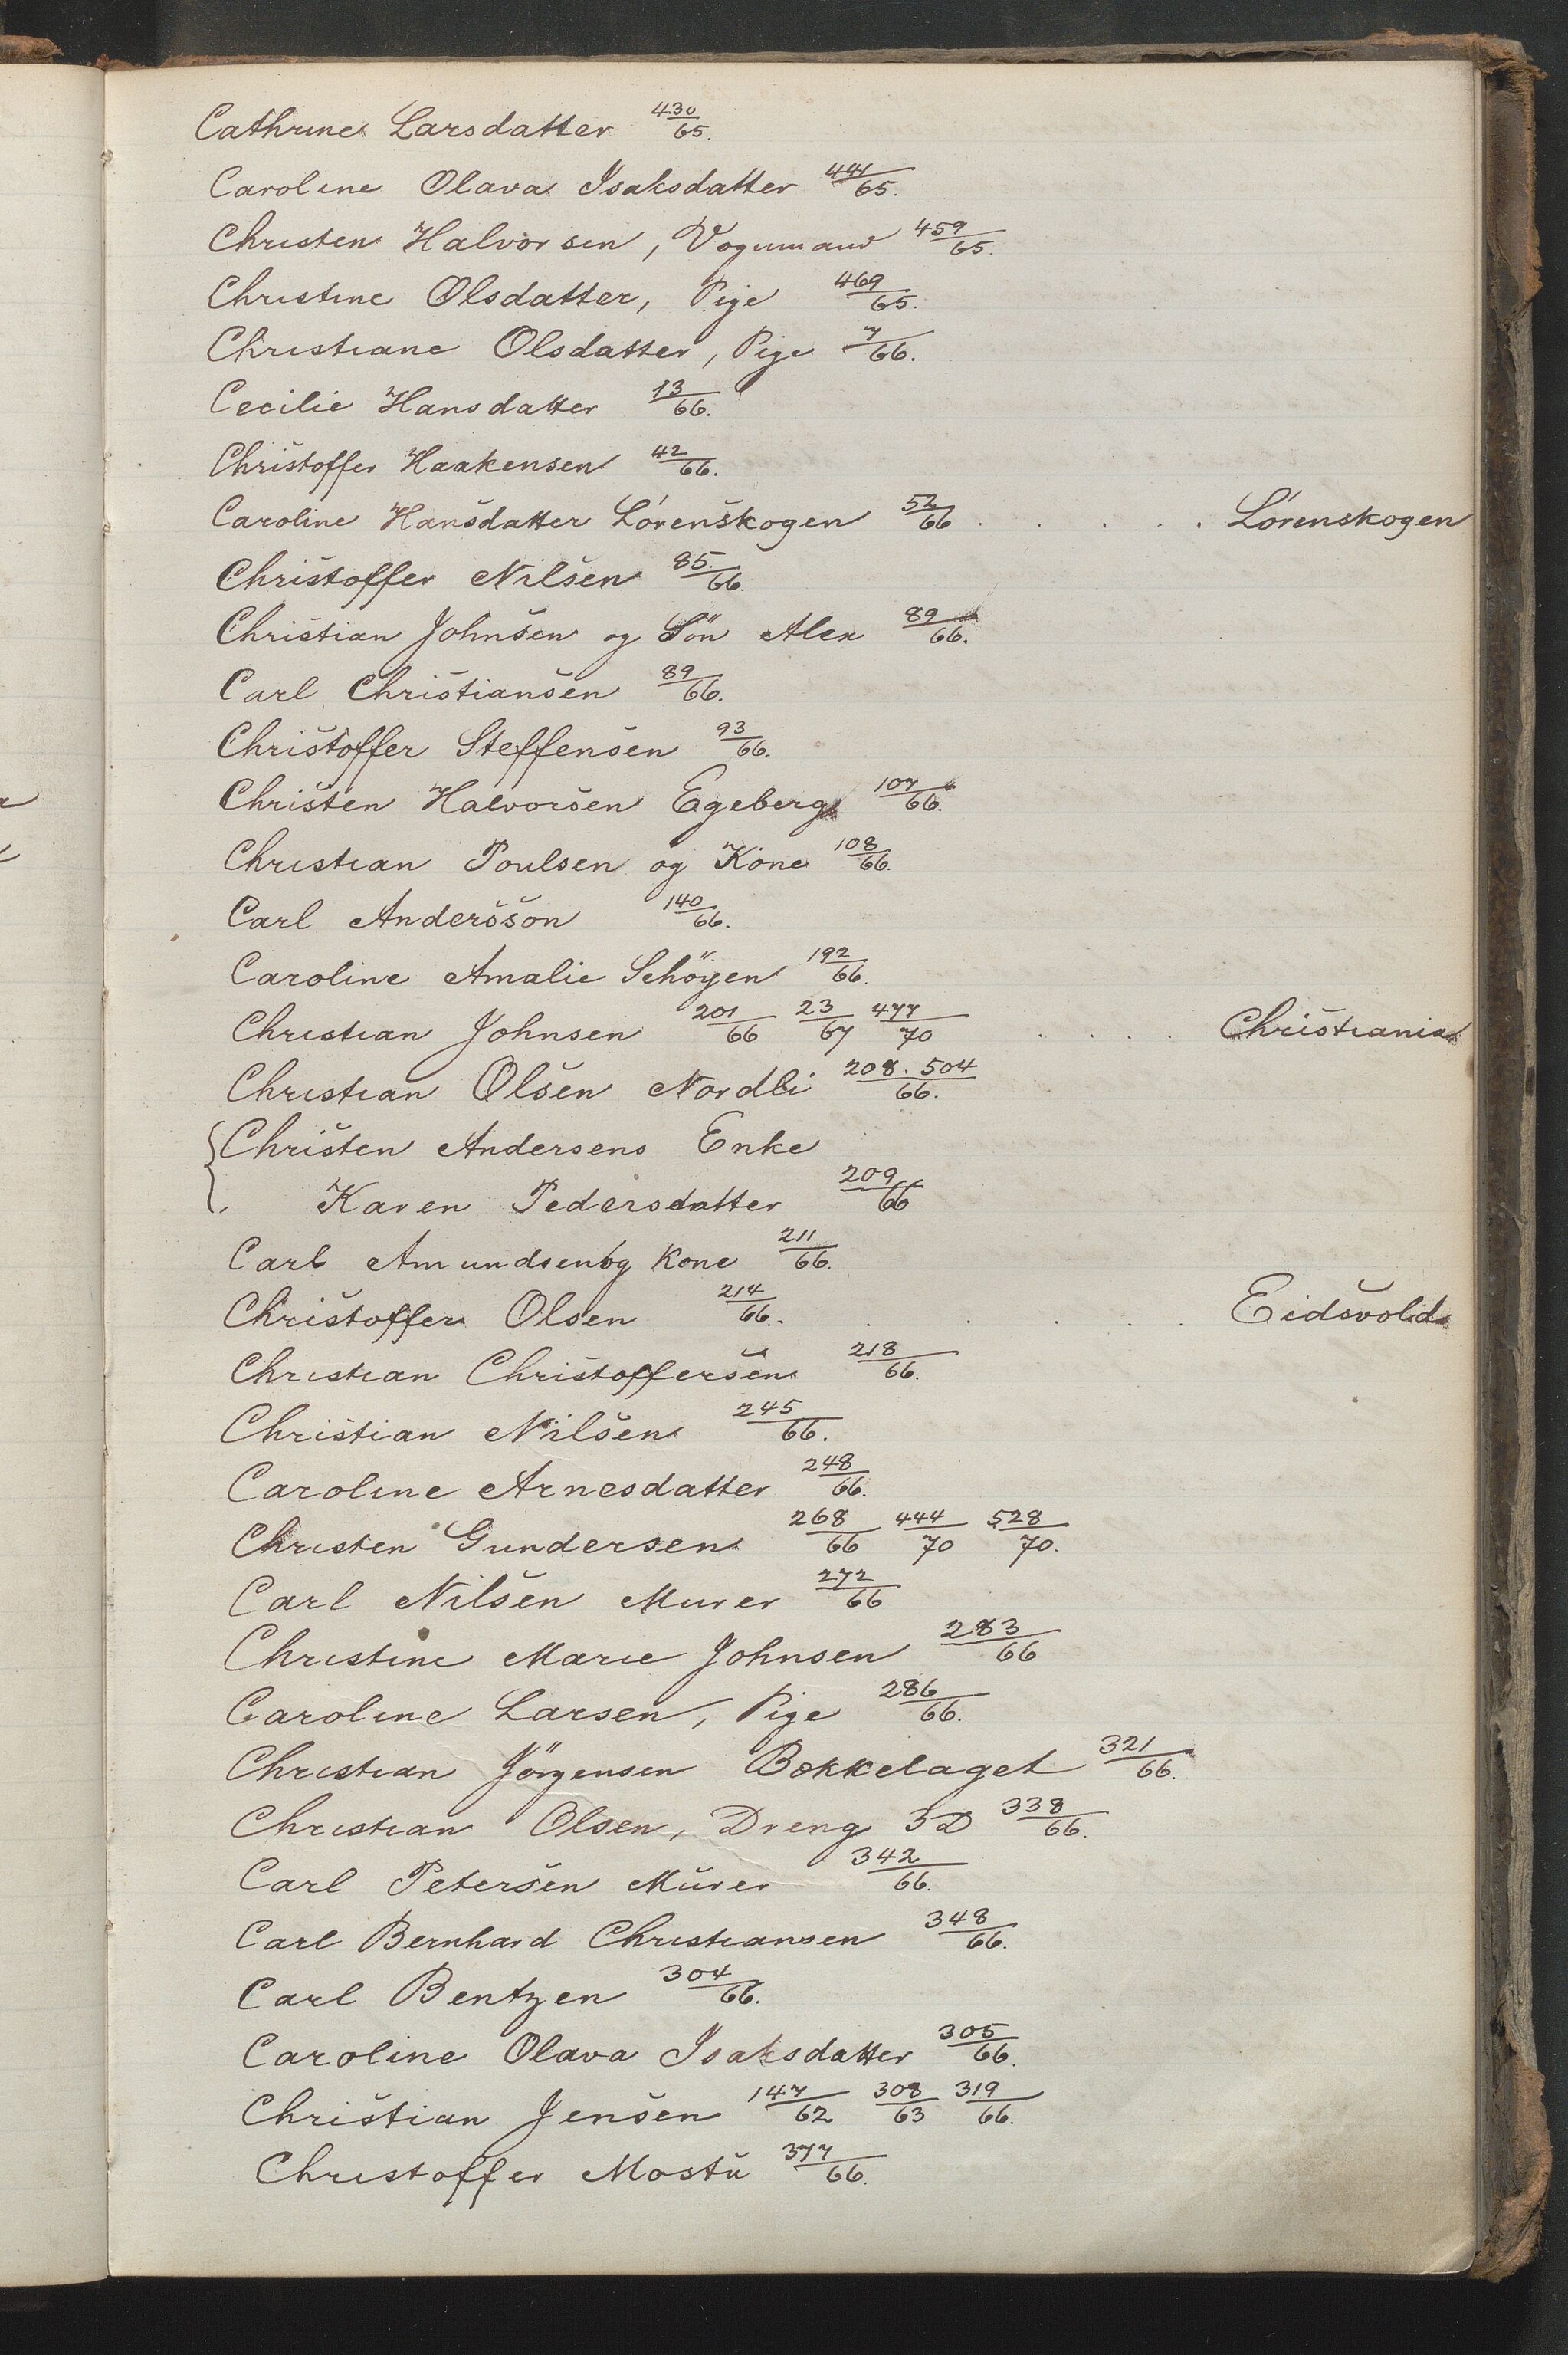 Cathrine Larsdatter 430/65.
Caroline Olava Isaksdatter 441/65.
Christen Halvorsen, Vognmand 459/65.
Christine Olsdatter, Pige 469/65.
Christiane Olsdatter, Pige 7/66.
Cecilie Hansdatter 13/66.
Christoffer Haakensen 42/66.
Caroline Hansdatter Lörenskogen 52/66 . . . . . Lörenskogen
Christoffer Nilsen 85/66.
Christian Johnsen og Sön Alex 89/66.
Carl Christiansen 89/66.
Christoffer Steffensen 93/66.
Christen Halvorsen Egeberg 107/66.
Christian Poulsen og Kone 108/66.
Carl Andersson 140/66.
Caroline Amalie Schöyen 192/66.
Christian Johnsen 201/66 23/67 477/70 . . . . Christiania
Christian Olsen Nordli 208. 504/66.
Christen Andersens Enke
Karen Pedersdatter 209/66
Carl Amundsen og Kone 211/66.
Christoffer Olsen 214/66. . . . . . Eidsvold
Christian Christoffersen 218/66.
Christian Nilsen 245/66.
Caroline Arnesdatter 248/66.
Christen Gundersen 268/66 444/70 528/70.
Carl Nilsen Murer 272/66
Christine Marie Johnsen 283/66
Caroline Larsen, Pige 286/66.
Christian Jörgensen Bækkelaget 321/66.
Christian Olsen, Dreng 3D 338/66.
Carl Petersen Murer 342/66.
Carl Bernhard Christiansen 348/66.
Carl Bentzen 304/66.
Caroline Olava Isaksdatter 305/66.
Christian Jensen 147/62 308/63 319/66.
Christoffer Mostu 377/66.